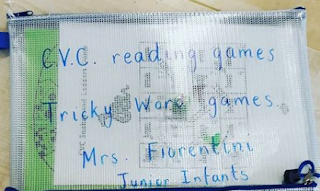 C.V.C. reading games
Tricky Word games.
Mrs. Fiorentini
Junior Infants